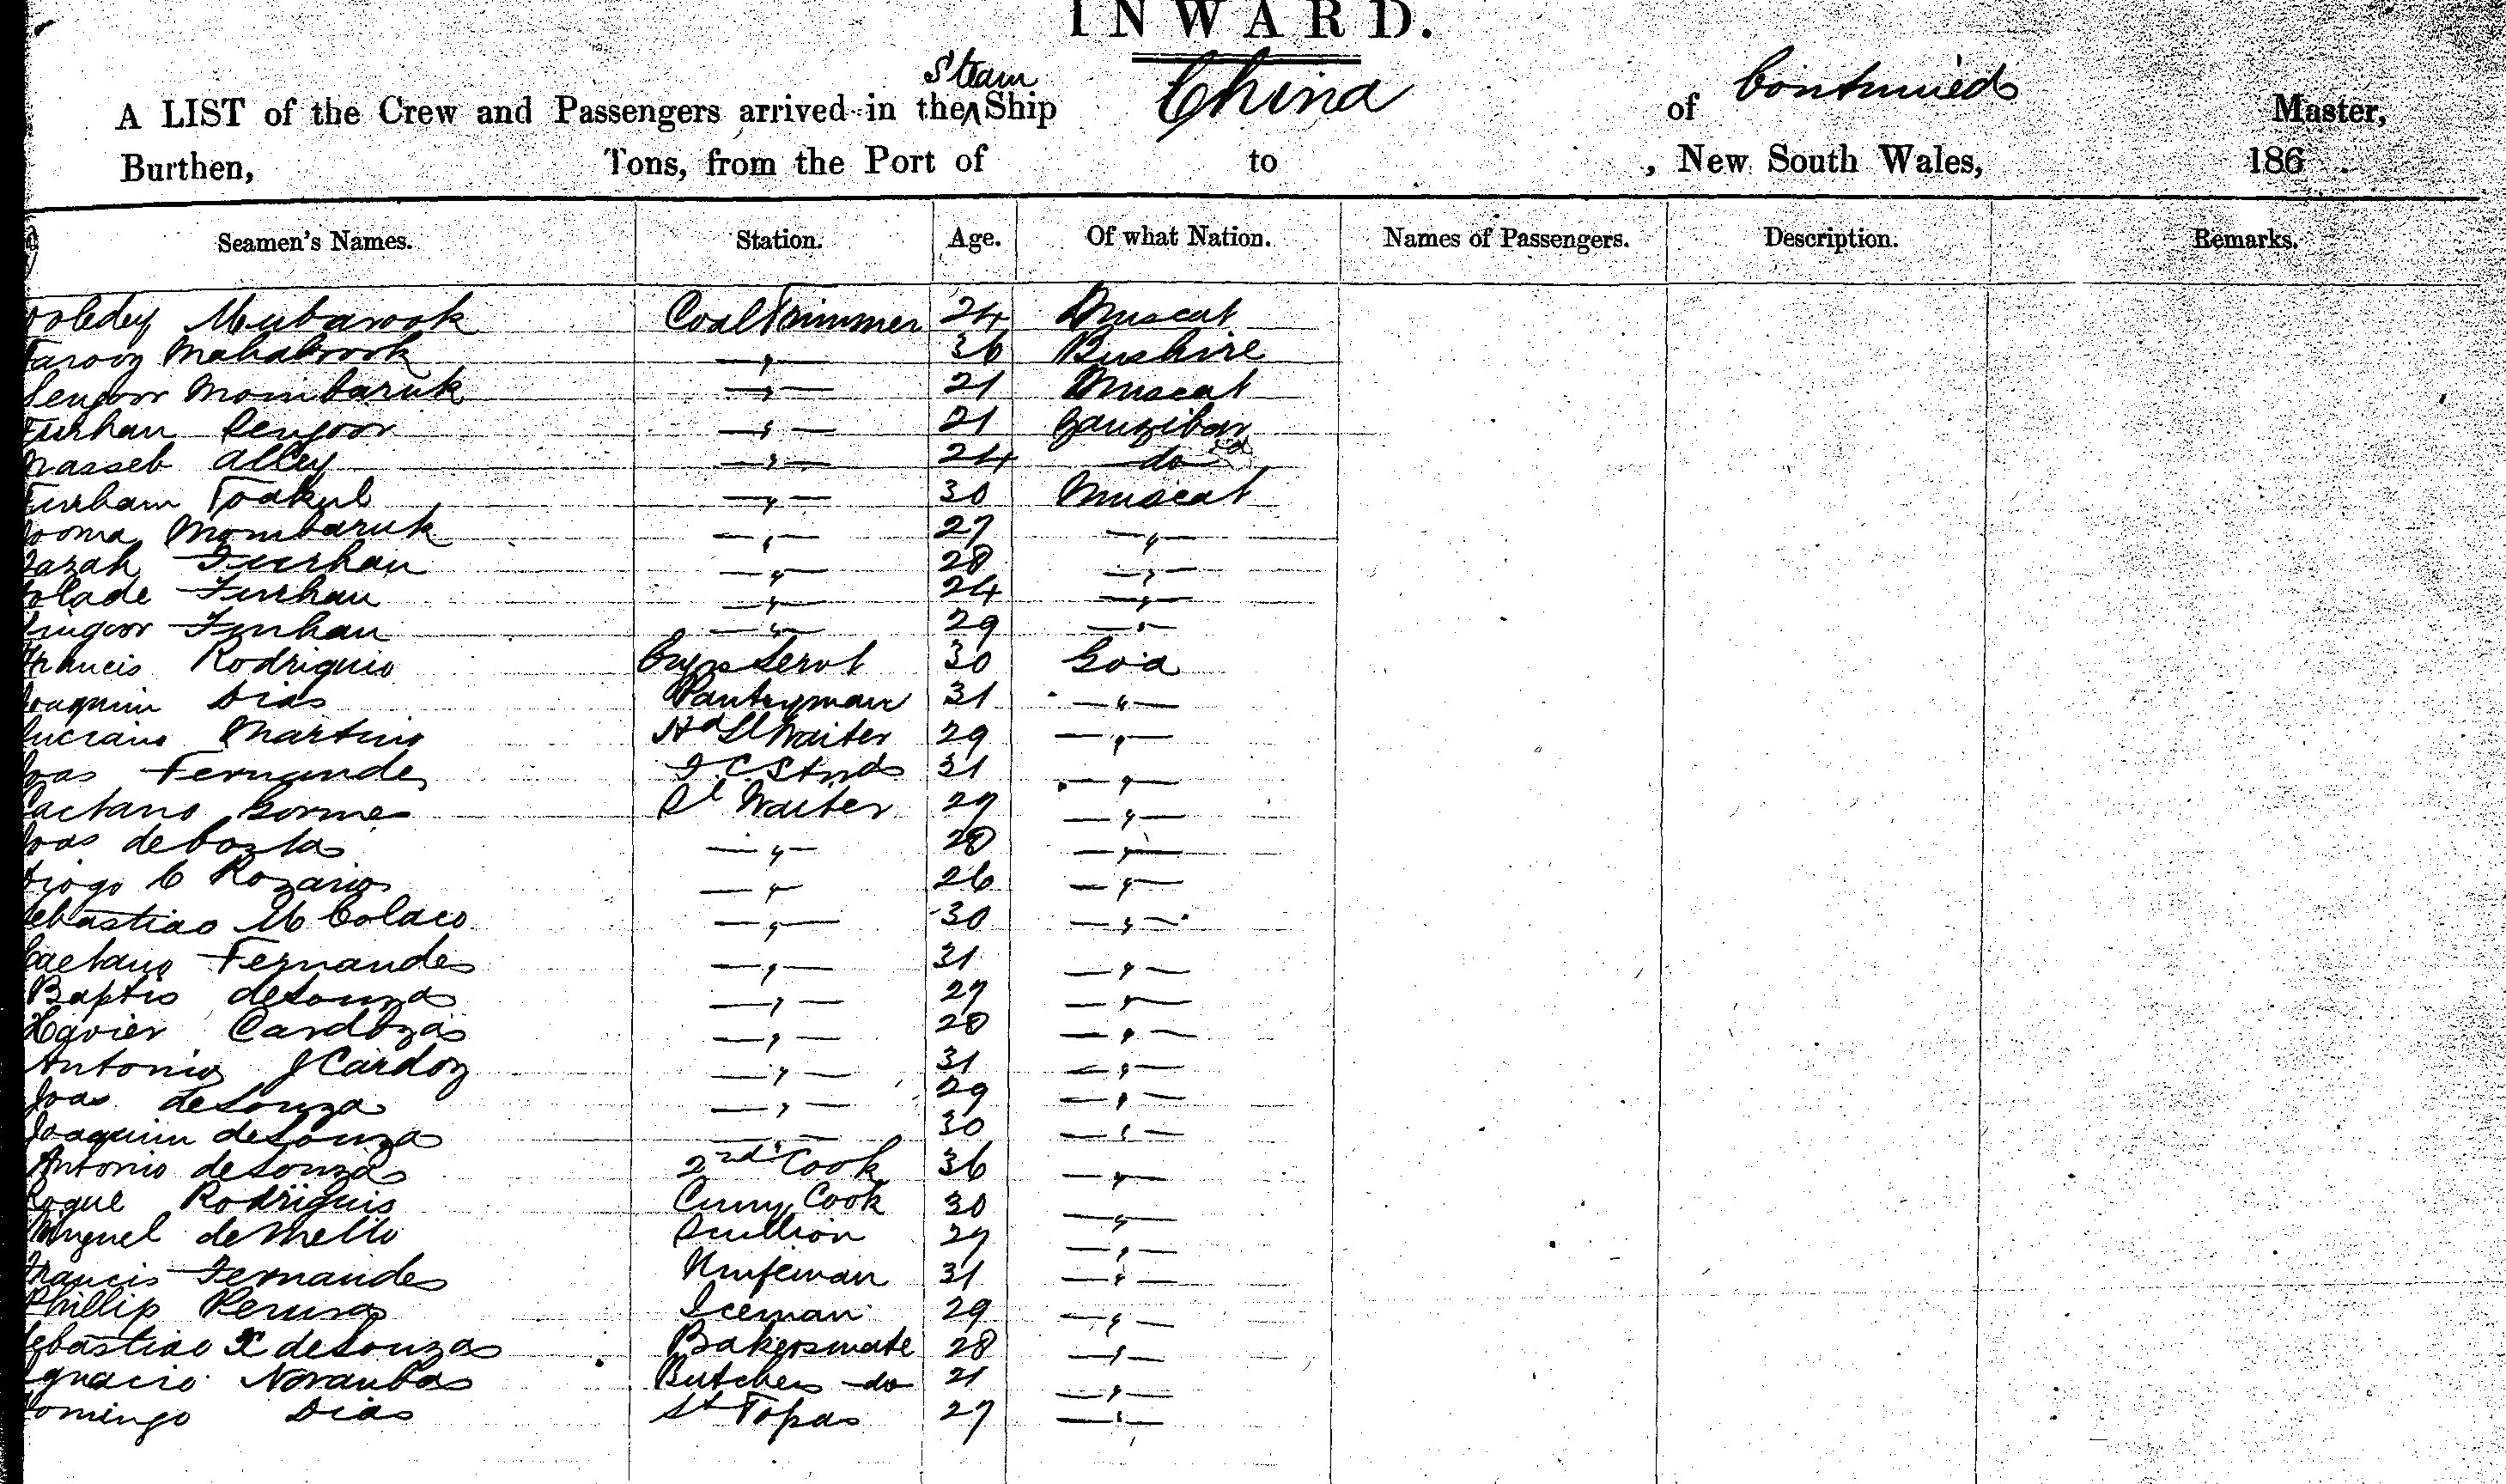 INWARD.
Steam
A LIST of the Crew and Passengers arrived in the ^ Ship China of Continued Master,
Burthen, Tons, from the Port of to , New South Wales, 186
Seamen's Names. Station. Age. Of what Nation. Names of Passengers. Description. Remarks.
Mubarook Coal Trimmer 24 Muscat
Farooz Mahabrook — " — 36 Bushire
Sengoor Mombaruk — " — 21 Muscat
Furhan Sengoor — " — 21 Zanzibar
Nasseb Alley — " — 24 do
Furham Toakul — " — 30 Muscat
Jooma Mombaruk — " — 27 — " —
Furhan — " — 28 — " —
Furhan — " — 24 — " —
Furhan — " — 29 — " —
Francis Rodriguis Servt 30 Goa
Joaquim Dias Pantryman 31 — " —
Luciano Martins Hd Sl Waiter 29 — " —
Joas Fernandes Stwds 31 — " —
Caetano Gomes Sl Waiter 27 — " —
Joas de Costas — " — 28 — " —
Diogo C Rozario — " — 26 — " —
Sebastiao M Colaco — " — 30 — " —
Caetano Fernandes — " — 31 — " —
Baptis de Souza — " — 27 — " —
Xavier Cardozas — " — 28 — " —
Antonio J Cardoz — " — 31 — " —
Joas de Souza — " — 29 — " —
Joaquim de Souza — " — 30 — " —
Antonio de Souza 2nd Cook 36 — " —
Roque Rodriguis Curry Cook 30 — " —
Miguel de Mello Scullion 27 — " —
Francis Fernandes Knifeman 31 — " —
Phillip Iceman 29 — " —
Sebastiao X de Souza Bakersmate 28 — " —
Ignacio Butchers do 21 — " —
Domingo Dias Topas 27 — " —